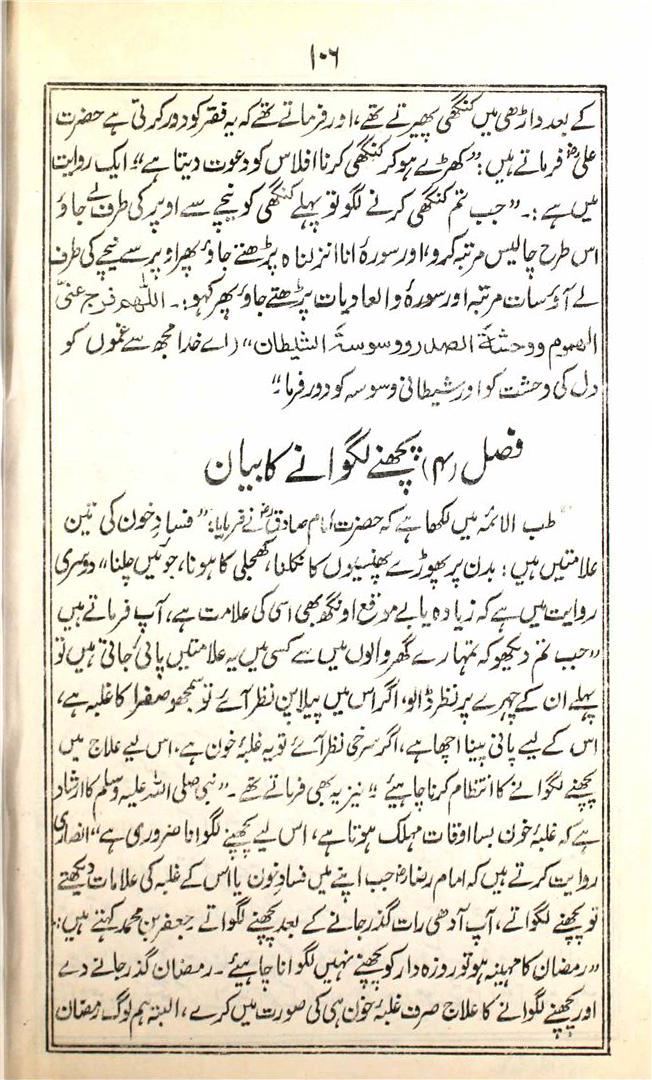 ۱۰۶
کے بعد داڑھی میں کنگھی پھیرتے تھے، اور فرماتے تھے کہ یہ فقر کو دور کرتی ہے حضرت
علیؓ فرماتے ہیں: "کھڑے ہو کر کنگھی کرنا افلاس کو دعوت دیتا ہے" ایک روایت
میں ہے:۔ "جب تم کنگھی کرنے لگو تو پہلے کنگھی کو نیچے سے اوپر کی طرف لے جاؤ
اس طرح چالیس مرتبہ کرو، اور سورۂ انا انزلناہ پڑھتے جاؤ پھر اوپر سے نیچے کی طرف
لے آؤ سات مرتبہ اور سورۂ والعادیات پڑھتے جاؤ پھر کہو:۔ اللّٰھم فرج عنیّ
الھموم ووحشۃ الصدر ووسوسۃ الشیطان" (اے خدا مجھ سے غموں کو
دل کی وحشت کو اور شیطانی وسوسہ کو دور فرما۔"
فصل (۴) پچھنے لگوانے کا بیان
طب الائمہ میں لکھا ہے کہ حضرت امام صادقؓ نے فرمایا: "فسادِ خون کی تین
علامتیں ہیں: بدن پر پھوڑے پھنسیوں کا نکلنا، کھجلی کا ہونا، جوئیں چلنا" دوسری
روایت میں ہے کہ زیادہ یا بے موقع اونگھ بھی اسی کی علامت ہے، آپ فرماتے ہیں
"جب تم دیکھو کہ تمہارے گھر والوں میں سے کسی میں یہ علامتیں پائی جاتی ہیں تو
پہلے ان کے چہرے پر نظر ڈالو، اگر اس میں پیلا پن نظر آئے تو سمجھو صفرا کا غلبہ ہے،
اس کے لیے پانی پینا اچھا ہے، اگر سرخی نظر آئے تو یہ غلبۂ خون ہے، اس لیے علاج میں
پچھنے لگوانے کا انتظام کرنا چاہیئے۔" نیز یہ بھی فرماتے تھے۔ "نبی صلی اللہ علیہ وسلم کا ارشاد
ہے کہ غلبۂ خون بسا اوقات مہلک ہوتا ہے، اس لیے پچھنے لگوانا ضروری ہے" انصاری
روایت کرتے ہیں کہ امام رضاؓ جب اپنے میں فسادِ خون یا اس کے غلبہ کی علامات دیکھتے
تو پچھنے لگواتے، آپ آدھی رات گذر جانے کے بعد پچھنے لگواتے۔ جعفر بن محمد کہتے ہیں:۔
"رمضان کا مہینہ ہو تو روزہ دار کو پچھنے نہیں لگوانا چاہیئے۔ رمضان گذر جانے دے
اور پچھنے لگوانے کا علاج صرف غلبۂ خون ہی کی صورت میں کرے، البتہ ہم لوگ رمضان